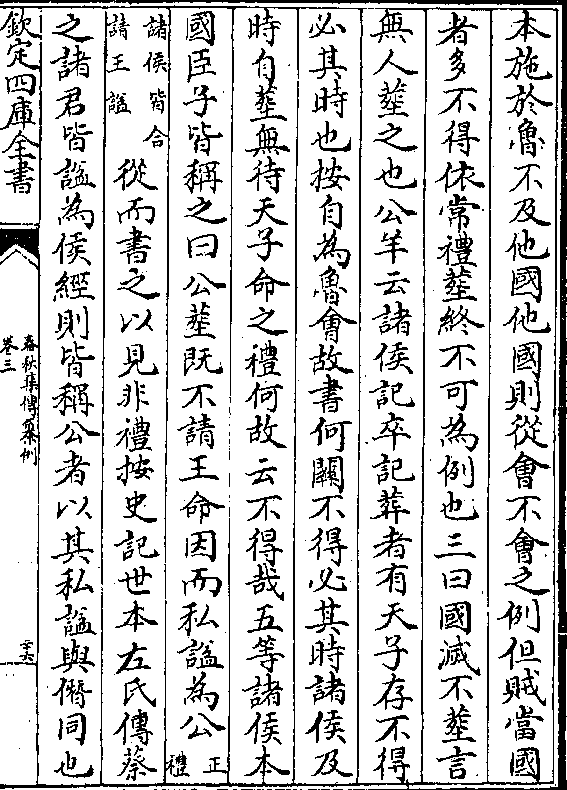 本施於魯不及他國他國則從會不會之例但賊當國
者多不得依常禮塟終不可為例也三曰國滅不塟言
無人塟之也公羊云諸侯記卒記葬者有天子存不得
必其時也按自為魯會故書何關不得必其時諸侯及
時自塟無待天子命之禮何故云不得哉五等諸侯本
國臣子皆稱之曰公塟既不請王命因而私諡為公正禮
諸侯皆合請王諡從而書之以見非禮按史記世本左氏傳蔡
之諸君皆諡為侯經則皆稱公者以其私諡與僭同也
欽定四庫全書
春秋集傳纂例
卷三
二十六